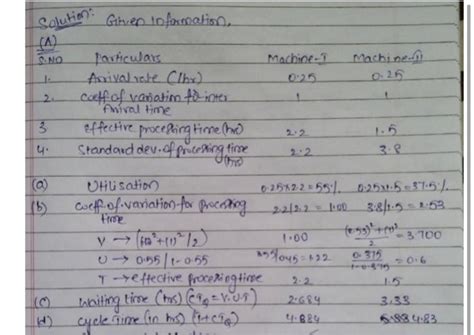 Solution: Given Information,
(A)
S.NO Particulars Machine-I Machine-II
1. Arrival rate (1/hr) 0.25 0.25
2. Coeff of variation for inter 1 1
Arrival time
3 effective processing time (hrs) 2.2 1.5
4. Standard dev. of processing time 2.2 3.8
(hrs)
(a) Utilisation 0.25x2.2=55% 0.25x1.5=37.5%
(b) Coeff. of variation for processing 2.2/2.2 = 1.00 3.8/1.5 = 2.53
time
V → (1)²+(1)²/2) 1.00 (2.53)²+(1)²/2 = 3.700
U → 0.55/1-0.55 0.55/0.45=1.22 0.375/1-0.375 = 0.6
T → effective processing time 2.2 1.5
(c) Waiting time (hrs) (CTq=V.U.T) 2.684 3.33
(d) Cycle Time (in hrs) (T+CTq) 4.884 4.83